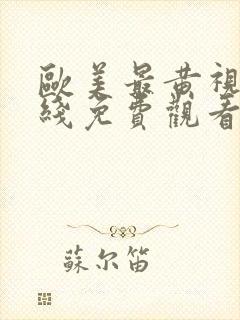 歐美最黃視
綫免費觀看
蘇尔笛